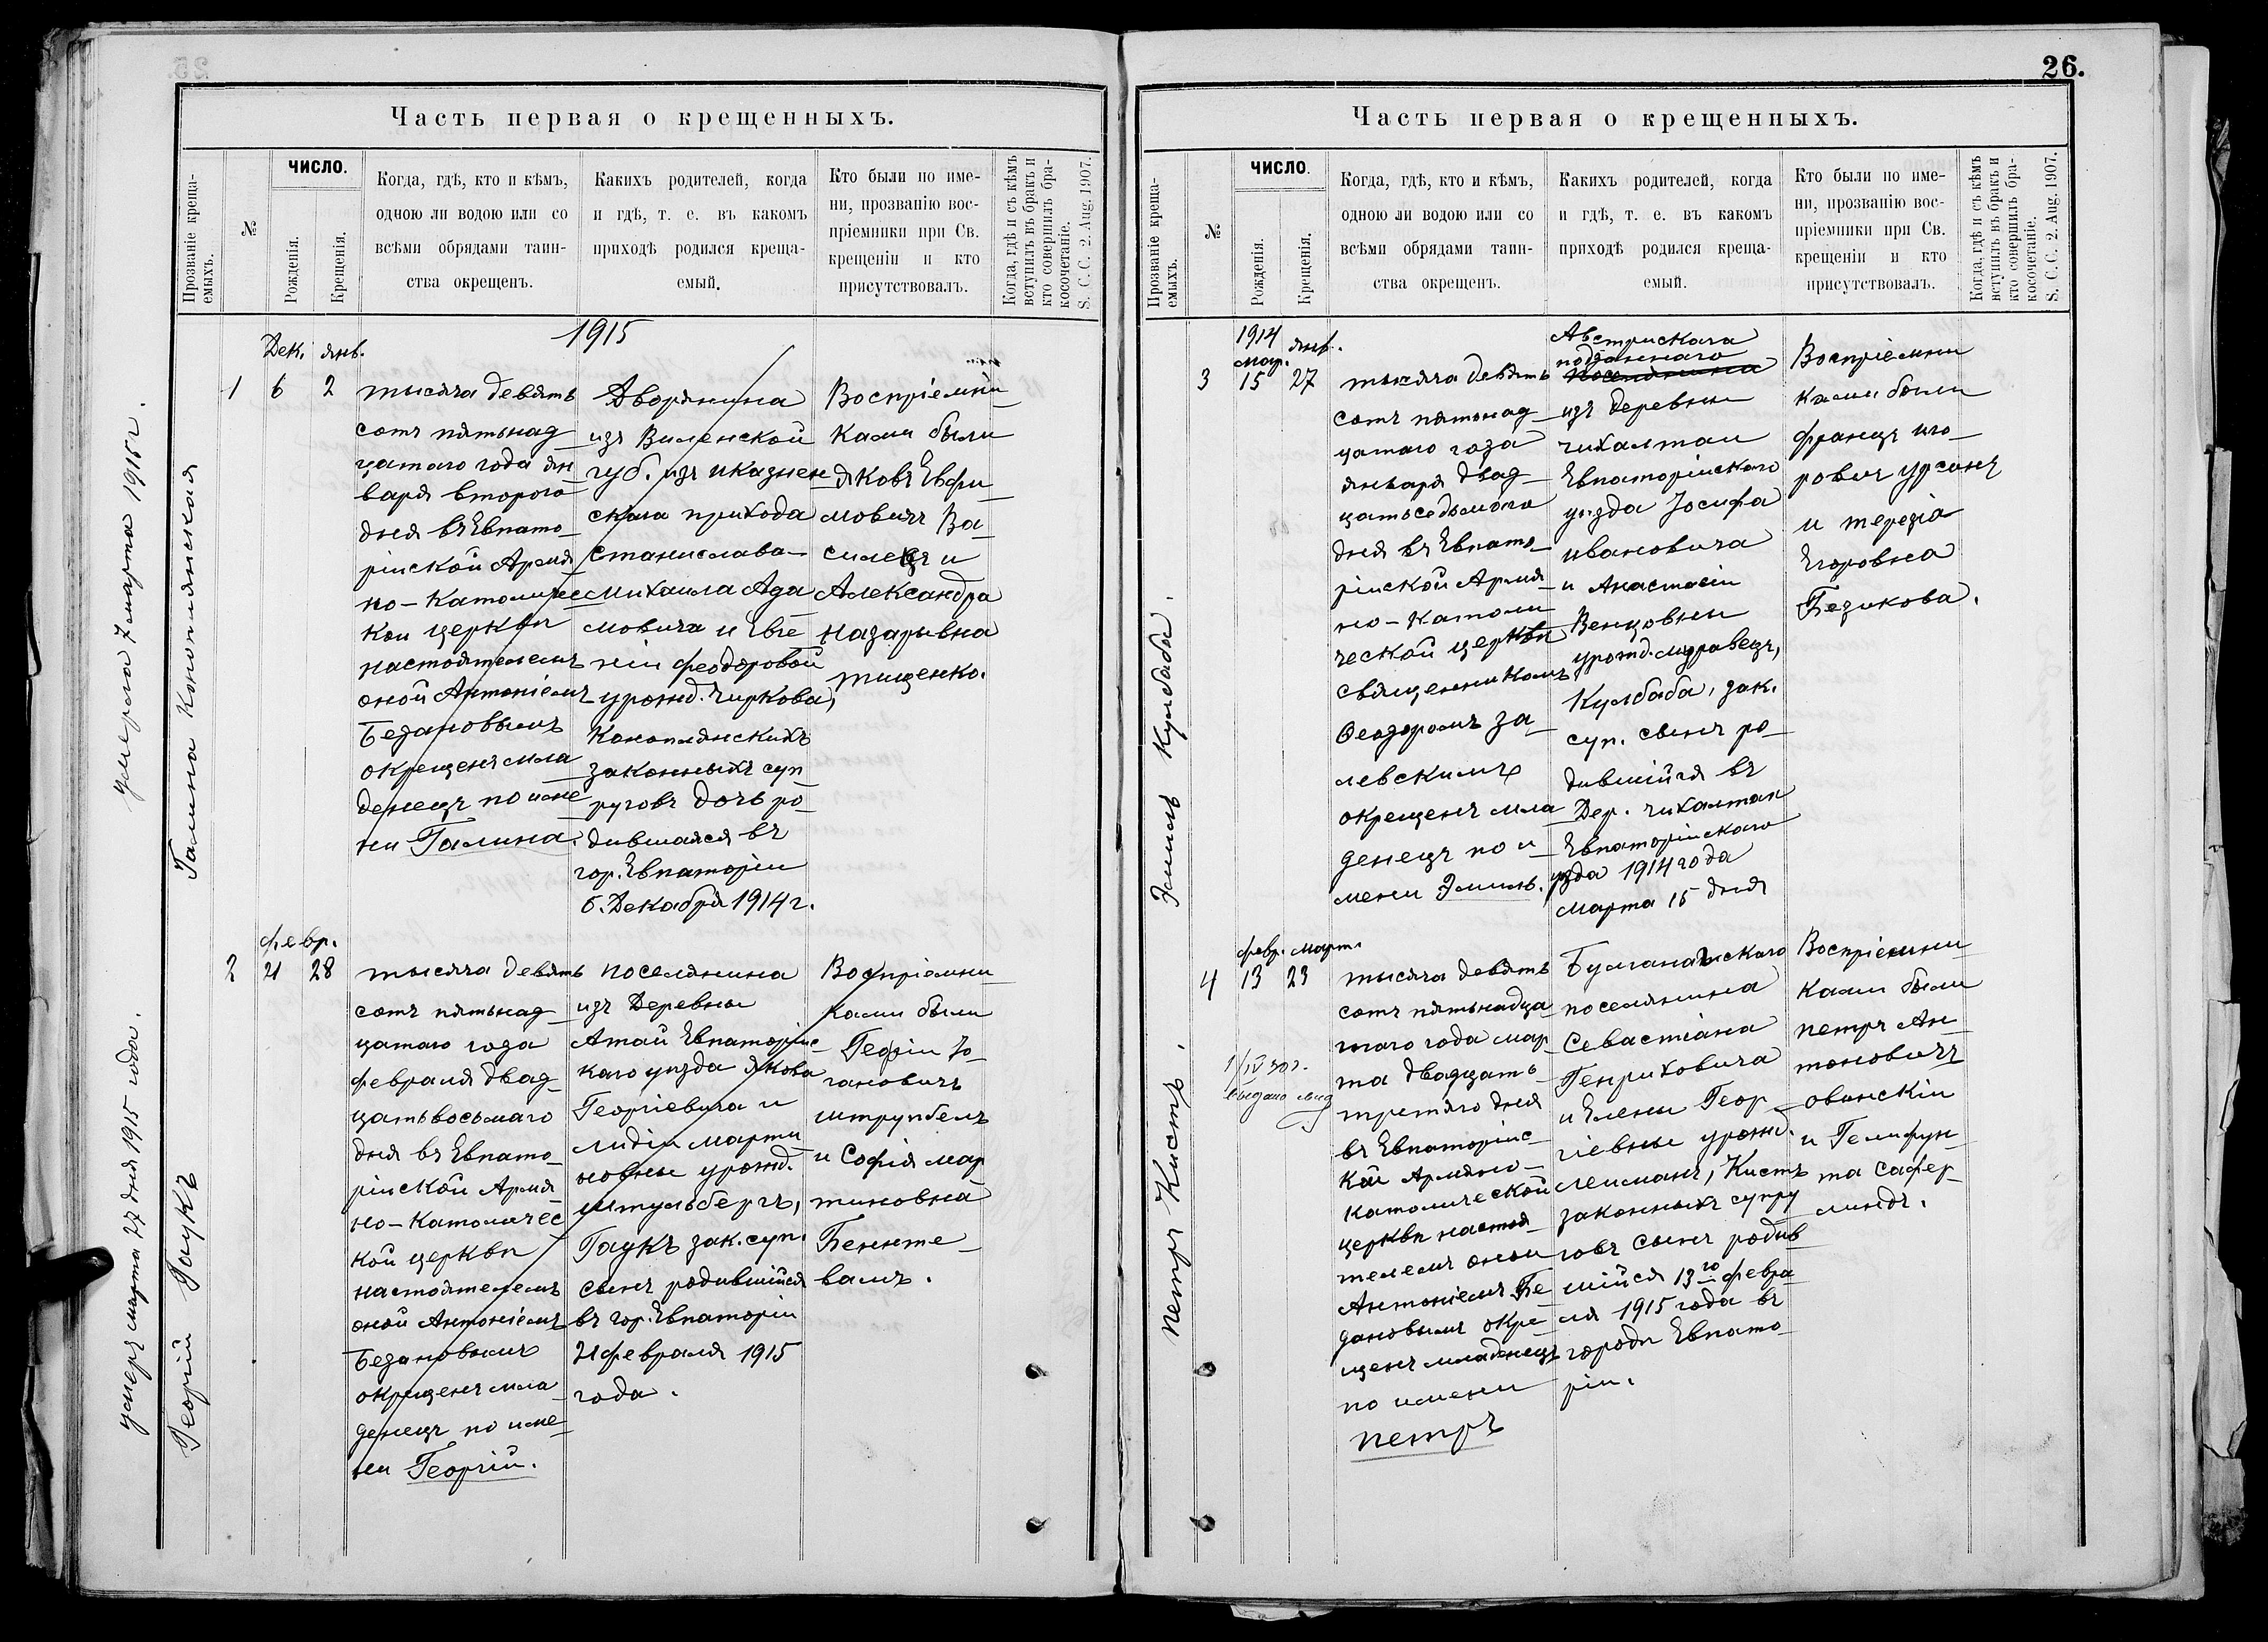 25.
Часть первая о крещенныхъ.
Прозваніе крещаемыхъ.
№
ЧИСЛО.
Рожденія.
Крещенія.
Когда, гдѣ, кто и кѣмъ,
одною ли водою или со
всѣми обрядами таин-
ства окрещенъ.
Какихъ родителей, когда
и гдѣ, т. е. въ какомъ
приходѣ родился креща-
емый.
Кто были по име-
ни, прозванію вос-
пріемники при Св.
крещеніи и кто
присутствовалъ.
Когда, гдѣ и съ кѣмъ
вступилъ въ бракъ и
кто совершилъ бра-
косочетаніе.
S. C. C. 2. Aug. 1907.
1915
умерла 7 марта 1915 г.
Галина Коноплянская
Дек. янв.
1 6 2
тысяча девять
сотъ пятьнад
цатаго года ян
варя второго
дня въ Евпато-
рійской Армя
но-Католичес
кои церкви
настоятелемъ
оной Антоніемъ
Безановымъ
окрещенъ мла
денецъ по име
ни Галина.
Дворянина
изъ Виленской
губ. изъ Иказнен
скаго прихода
Станислава-
Михаила Ада
мовича и Евге
ніи Феодоровой
урожд. Чиркова,
Коноплянскихъ
законныхъ суп
руговъ дочь ро
дившаяся въ
гор. Евпаторіи
6. Декабря 1914 г.
Воспріемни
ками были
Яковъ Евфи
мовичъ Ва-
силецъ и
Александра
Назарьвна
Тищенко.
умеръ марта 27 дня 1915 года.
Георгій Гаукъ
февр.
2 21 28
тысяча девять
сотъ пятьнад
цатаго года
февраля двад
цатьвосьмаго
дня въ Евпато-
рійской Армя
но-Католичес
кой церкви
настоятелемъ
оной Антоніемъ
Безановымъ
окрещенъ мла
денецъ по име
ни Георгій.
поселянина
изъ Деревни
Атай Евпаторійс-
каго уѣзда Якова
Георгіевича и
Лидіи Марти
новны урожд.
Штульбергъ,
Гаукъ зак. суп.
сынъ родившійся
въ гор. Евпаторіи
21 февраля 1915
года.
Воспріемни
ками были
Георгій Іо-
гановичъ
Штрумбелъ
и Софія Мар
тиновна
Бенкте-
валъ.
26.
Часть первая о крещенныхъ.
Прозваніе крещаемыхъ.
№
ЧИСЛО.
Рожденія.
Крещенія.
Когда, гдѣ, кто и кѣмъ,
одною ли водою или со
всѣми обрядами таин-
ства окрещенъ.
Какихъ родителей, когда
и гдѣ, т. е. въ какомъ
приходѣ родился креща-
емый.
Кто были по име-
ни, прозванію вос-
пріемники при Св.
крещеніи и кто
присутствовалъ.
Когда, гдѣ и съ кѣмъ
вступилъ въ бракъ и
кто совершилъ бра-
косочетаніе.
S. C. C. 2. Aug. 1907.
Эмиль Кулбаба.
1914
мар. янв.
3 15 27
тысяча девять
сотъ пятьнад
цатаго года
января двад
цатьседьмого
дня въ Евпато-
рійской Армя
но-Католи
ческой церкви
священникомъ
Феодоромъ За-
левскимъ
окрещенъ мла
денецъ по и
мени Эмиль.
Австрискаго
подданнаго
поселянина
изъ деревни
Чихалтаи
Евпаторійскаго
уѣзда Іосифа
Ивановича
и Анастасіи
Венцовны
урожд. Муравецъ,
Кулбаба, зак.
суп. сынъ ро-
дившійся въ
Дер. Чихалтаи
Евпаторійскаго
уѣзда 1914 года
марта 15 дня
Воспріемни
ками были
Францъ Иго-
ровичъ Урсинъ
и Терезіа
Егоровна
Безикова.
Петръ Кистъ.
февр. март.
4 13 23
1/IV 30 г.
выдано
тысяча девять
сотъ пятьнадца
таго года мар
та двадцать
третяго дня
въ Евпаторійс-
кой Армяно-
католической
церкви настоя
телемъ оной
Антоніемъ Бе
зановымъ окре-
щенъ младенецъ
по имени
Петръ
Булганакскаго
поселянина
Севастіана
Генриховича
и Елены Геор
гіевны урожд.
Лейманъ, Кистъ
законныхъ супру
говъ сынъ родив
шійся 13го февра
ля 1915 года въ
городѣ Евпато
ріи.
Воспріемни
ками были
Петръ Ан-
тоновичъ
Овинскій
и Гелифун
та Сафер
линдъ.